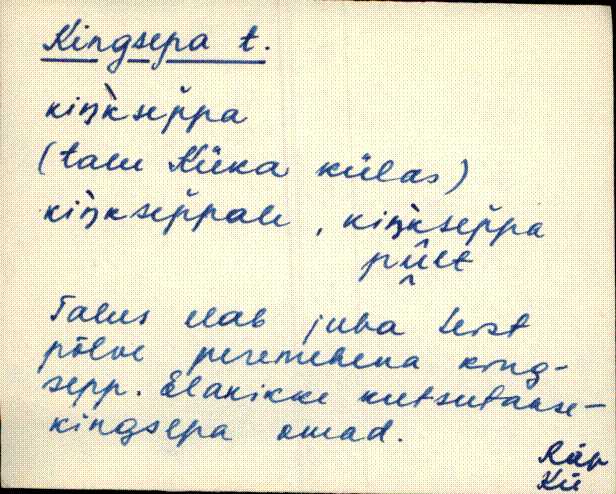 Kingsepa t.
kiŋ̀kse p̆pa
(talu Küka külas)
kiŋ̀kse p̆pale, kiŋ̀kse p̆pa
pûlt
Talus elab juba teist
põlve peremehena king-
sepp. Elanikke kutsutakse –
kingsepa omad.
Räp
Kü